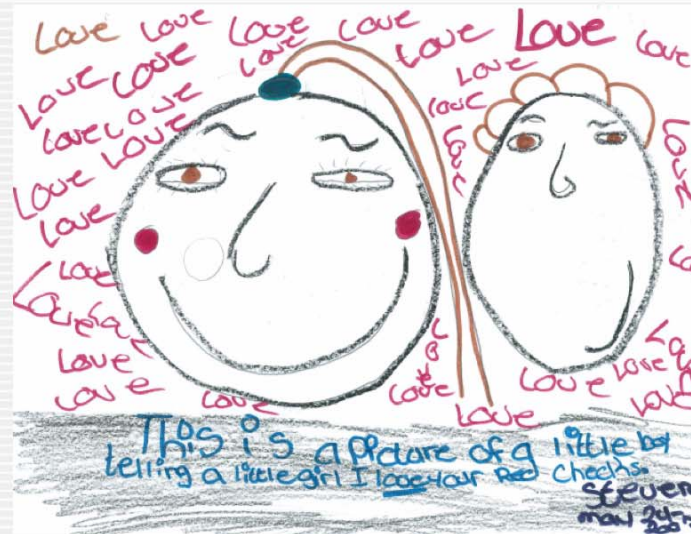 Love Love Love Love Love Love Love
Love Love Love Love
Love Love Love
Love Love Love Love
Love
Love
Love
Love
Love Love Love Love
Love Love Love Love Love
This is a picture of a little boy
telling a little girl I love your Red Cheeks.
Steven